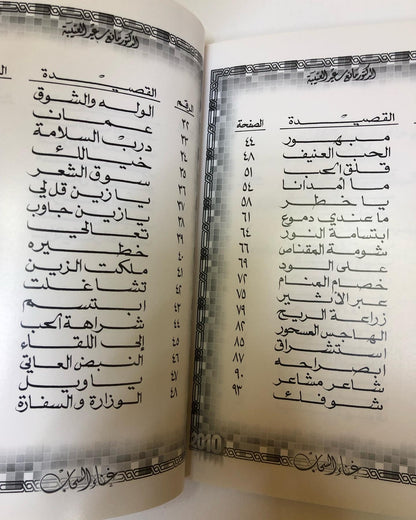 الدكتور مانع سعيد العتيبة
القصيدة الصفحة
مبهور ٤٤
الحب العنيف ٤٨
قلق الحب ٥١
ما امدانا ٥٤
يا خطر ٥٨
ما عندي دموع ٦١
ابتسامة النور ٦٤
شومة المقناص ٦٦
على الود ٦٩
خصام المنام ٧٢
عبر الأثير ٧٥
زراعة الريح ٧٩
الهاجس المسحور ٨٢
استشراق ٨٥
ابصراحه ٨٧
شاعر مشاعر ٩٠
شوفك ٩٣
2010
غناء السحاب
الدكتور مانع سعيد العتيبة
الرقم القصيدة
٣٢ الوله والشوق
٣٣ عمان
٣٤ درب السلامة
٣٥ خيالك
٣٦ سوق الشعر
٣٧ يا زين قل لي
٣٨ يا زين جاوب
٣٩ تعالي
٤٠ خطيره
٤١ ملكت الزين
٤٢ تشاغلت
٤٣ ابتسم
٤٤ شراهة الحب
٤٥ إلى اللقاء
٤٦ النبض العاتي
٤٧ يا ويل
٤٨ الوزارة والسفارة
غناء السحاب